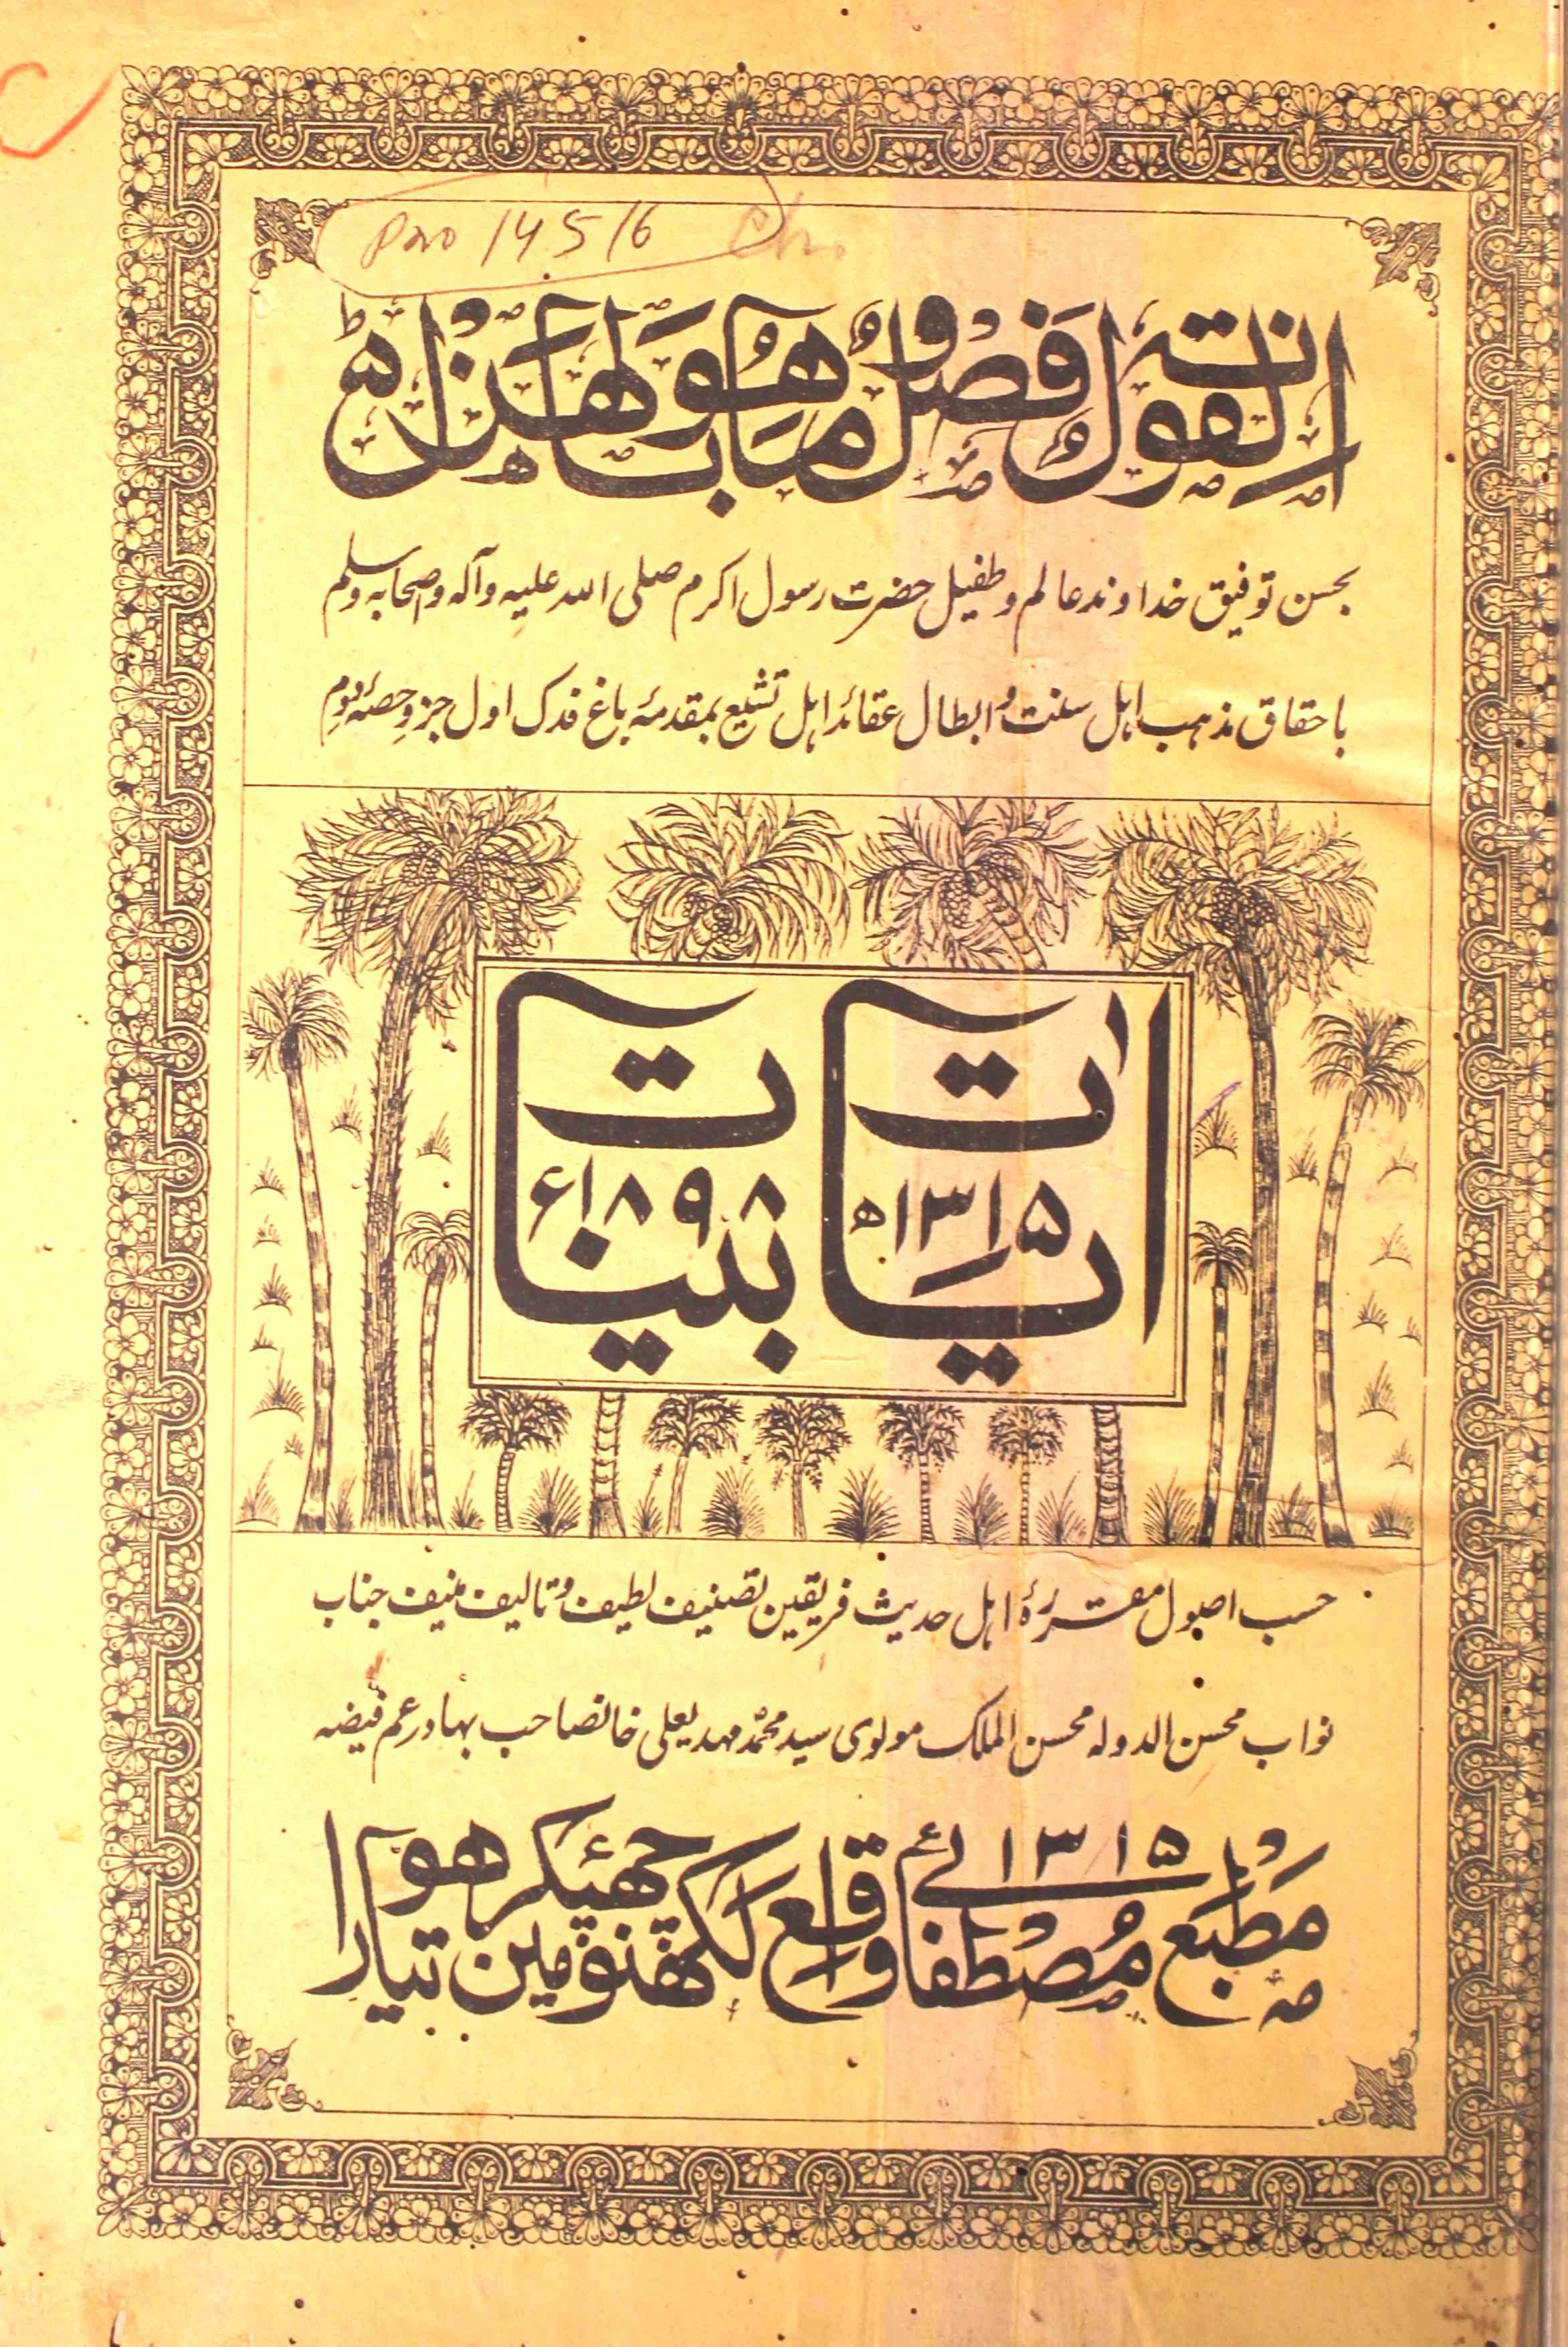 Pno 14516
انه لقول فصل وما هو بالهزل
بحسن توفیق خداوند عالم و طفیل حضرت رسول اکرم صلی اللہ علیہ وآلہ واصحابہ وسلم
باحقاق مذہب اہل سنت و ابطال عقائد اہل تشیع بمقدمۂ باغ فدک اول جزو حصۂ دوم
ایات بینات
۱۳۱۵ھ ۱۸۹۸ء
حسب اصول مقررۂ اہل حدیث فریقین تصنیف لطیف و تالیف منیف جناب
نواب محسن الدولہ محسن الملک مولوی سید محمد مہدیعلی خانصاحب بہادر عم فیضہ
مطبع مصطفائے ۱۳۱۵ واقع لکھنؤ مین چھپکر تیار ہوا